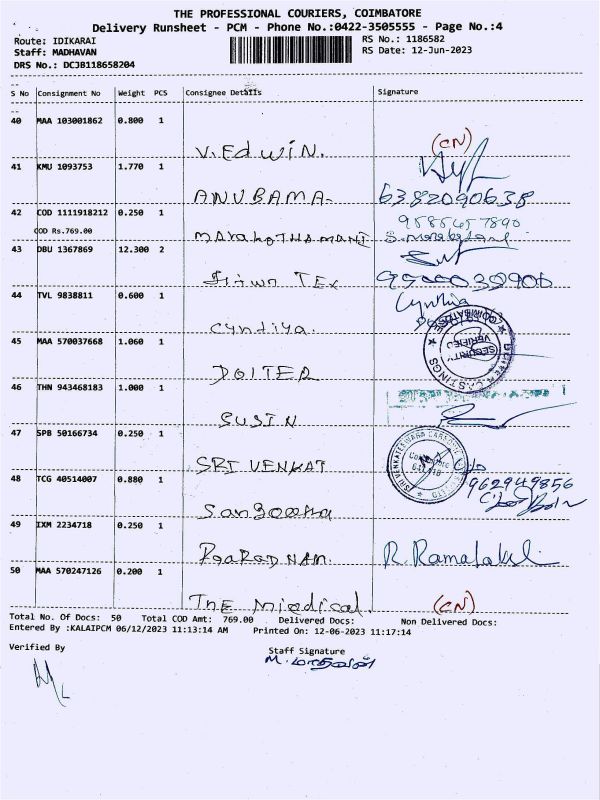 THE PROFESSIONAL COURIERS, COIMBATORE
Delivery Runsheet - PCM - Phone No.:0422-3505555 - Page No.:4
Route: IDIKARAI
RS No.: 1186582
Staff: MADHAVAN
RS Date: 12-Jun-2023
DRS No.: DCJB118658204
S No Consignment No Weight PCS Consignee Details Signature
40 MAA 103001862 0.800 1
V. EdWIN. (CN)
41 KMU 1093753 1.770 1
ANUBAMA- 6382090638
42 COD 1111918212 0.250 1
9585457890
COD Rs.769.00
43 DBU 1367869 12.300 2
TEX
44 TVL 9838811 0.600 1
Cynthia
Cyntiya.
45 MAA 570037668 1.060 1
DOITER
SECURITY
VERIFIED
46 THN 943468183 1.000 1
SUSIN
47 SPB 50166734 0.250 1
SRI VENKAT
SRI VENKATESWARA
48 TCG 40514007 0.880 1
962949856
49 IXM 2234718 0.250 1
50 MAA 570247126 0.200 1
THE Miedical. (CN)
Total No. Of Docs: 50 Total COD Amt: 769.00 Delivered Docs: Non Delivered Docs:
Entered By :KALAIPCM 06/12/2023 11:13:14 AM Printed On: 12-06-2023 11:17:14
Verified By
Staff Signature
M. மாதவன்